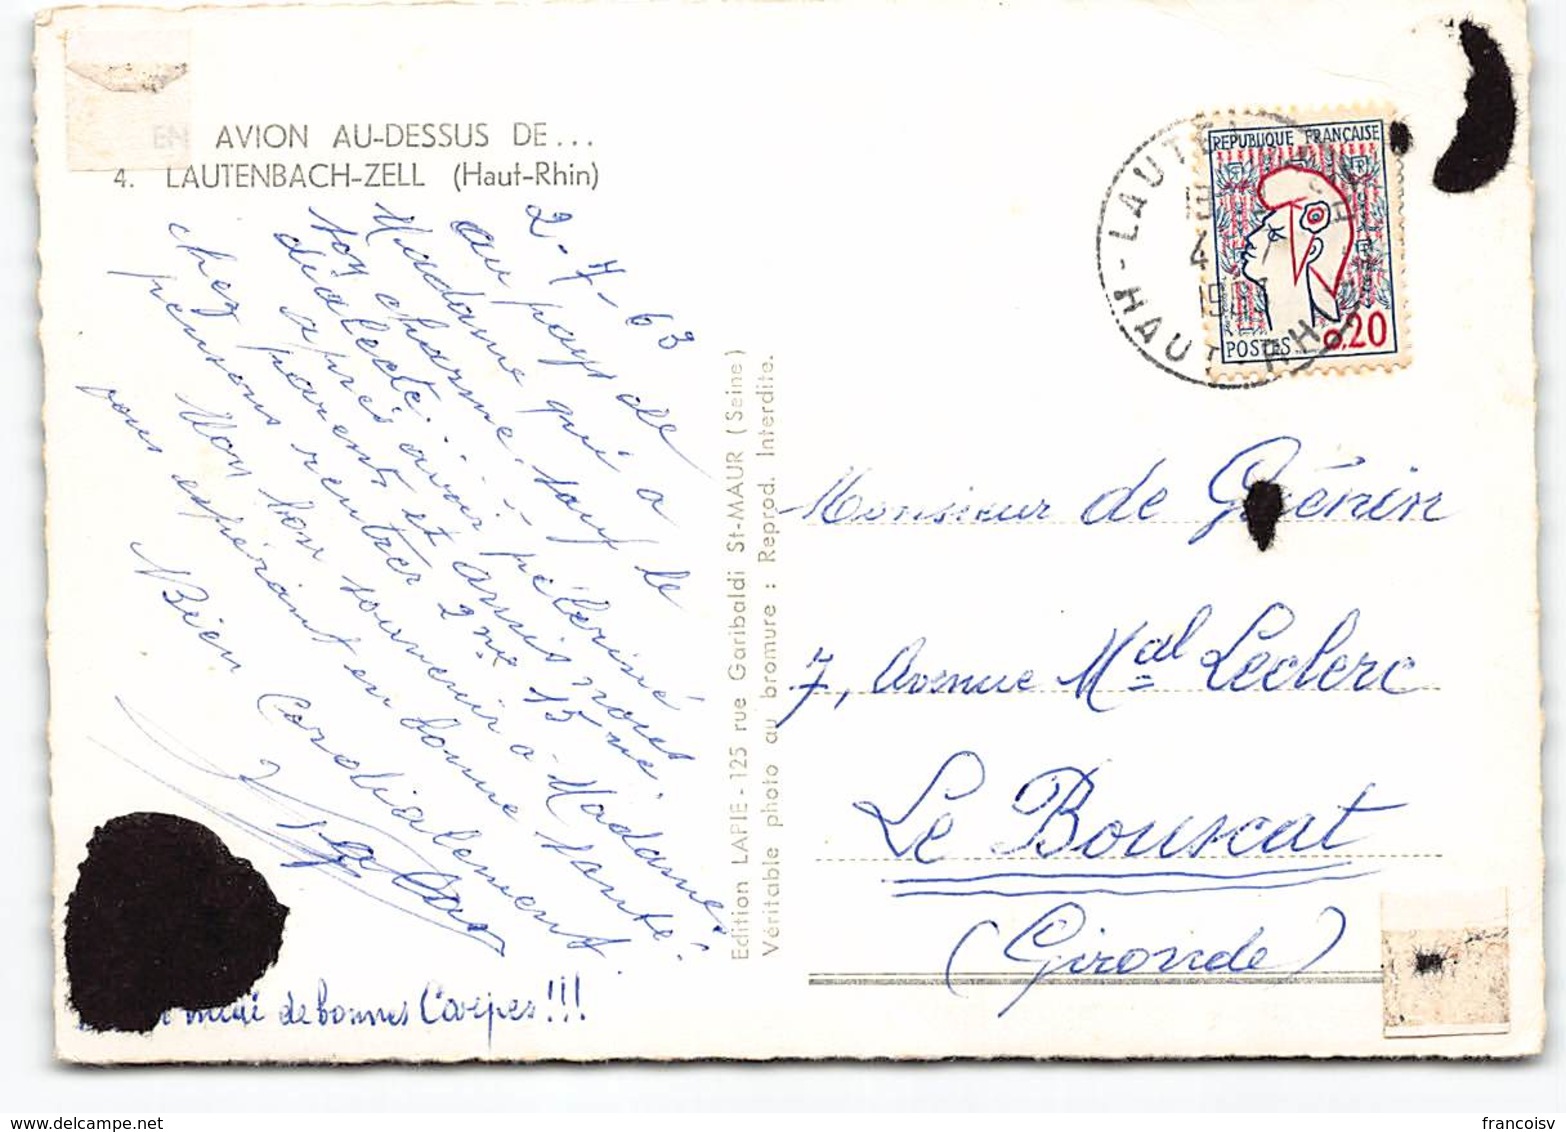 EN AVION AU-DESSUS DE...
4. LAUTENBACH-ZELL (Haut-Rhin)
2-7-63
Au pays de
Madame qui a
son charme, sauf le
dialecte...
après avoir pélériné
chez parents et amis nous
pensons rentrer 2me 15ne.
Mon bon souvenir à Madame.
vous espérant en bonne santé.
Bien Cordialement.
de bonnes Carpes!!!
Edition LAPIE - 125 rue Garibaldi St-MAUR (Seine)
Véritable photo au bromure : Reprod. Interdite.
REPUBLIQUE FRANÇAISE
POSTES 0,20
HAUT-RHIN
Monsieur de Guénin
7, Avenue Mal Leclerc
Le Bouscat
(Gironde)
francoisv